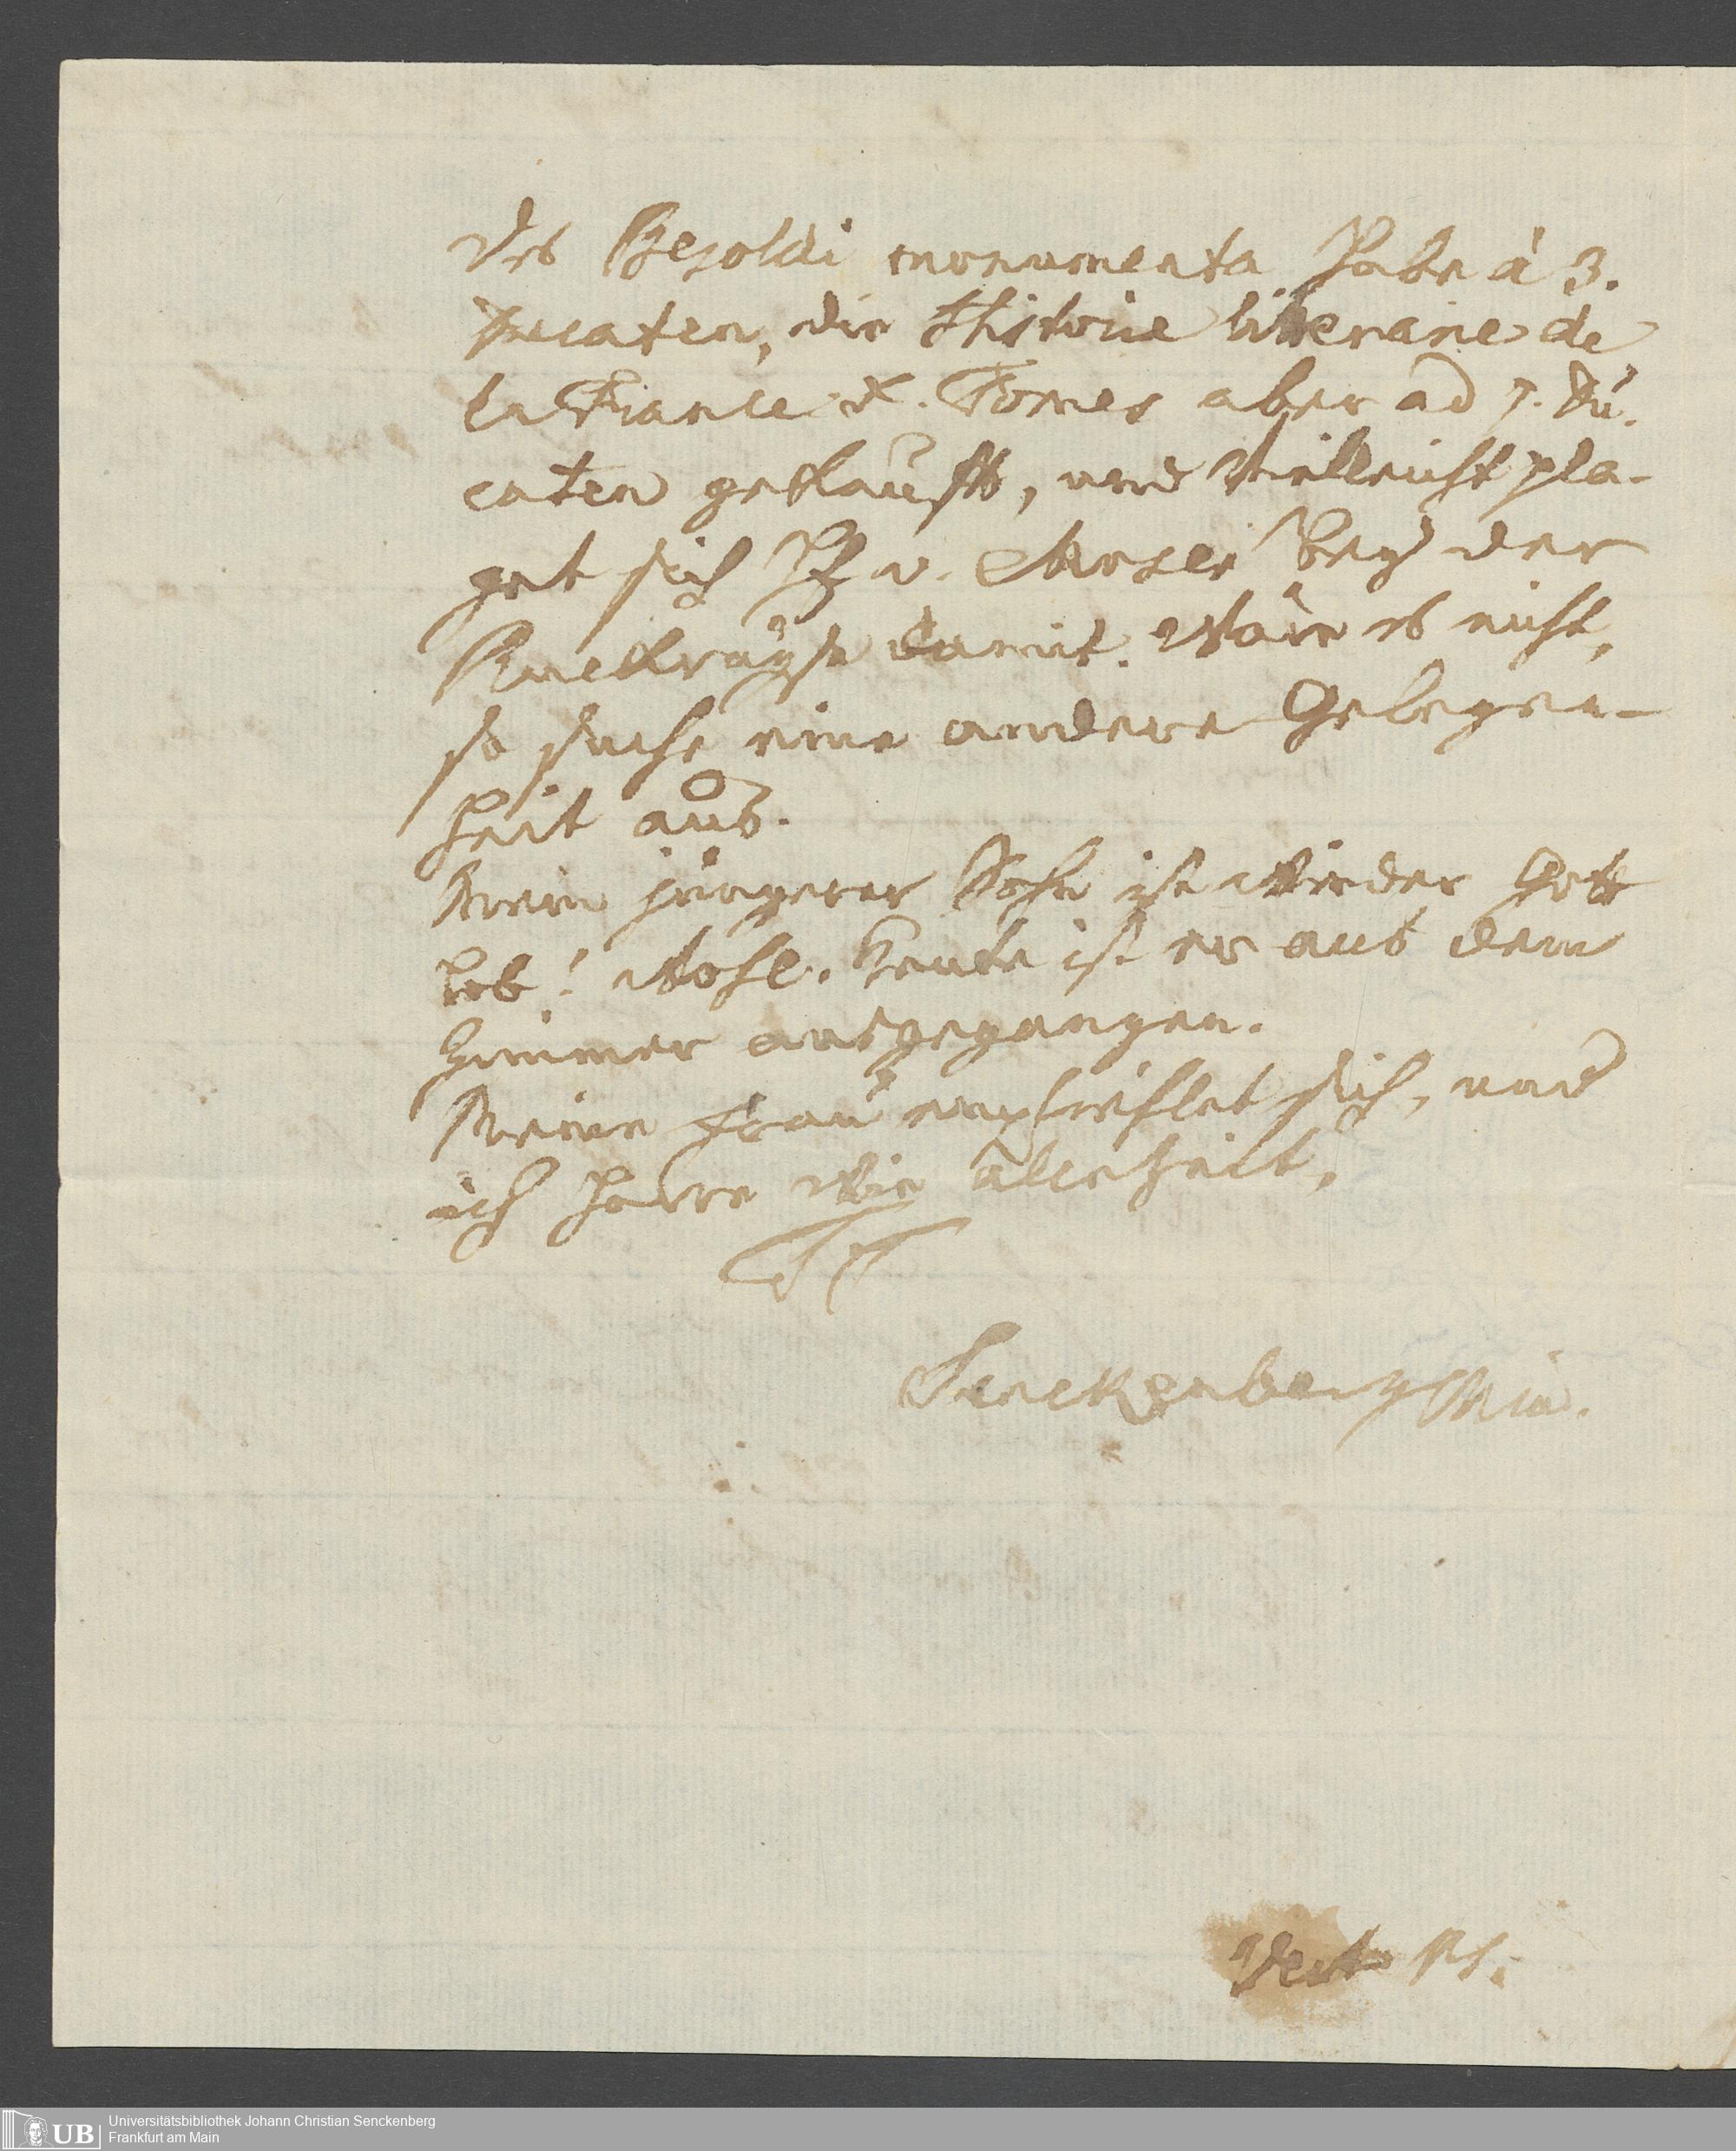 Des Besoldi monumenta habe à 3.
Ducaten, die Histoire literaire de
la France X. Tomes aber ad 7. Du-
caten gekaufft, und vielleicht pla-
get sich H. v. Moser bey der
Ruckreyse damit. Wäre es nicht,
so suche eine andere Gelegen-
heit aus.
Mein jüngerer Sohn ist wieder Gott
lob! wohl. Heute ist er aus dem
Zimmer ausgegangen.
Meine Frau empfiehlet sich, und
ich harre wie allezeit,
Senckenberg
Vert
Universitätsbibliothek Johann Christian Senckenberg
Frankfurt am Main
UB